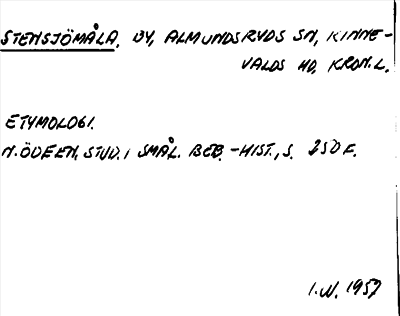 STENSJÖMÅLA, BY, ALMUNDSRYDS SN, KINNE-
VALDS HD, KRON.L.
ETYMOLOGI.
N.ÖDEEN, STUD. I SMÅL. BEB.-HIST., S. 250 F.
I.W. 1957